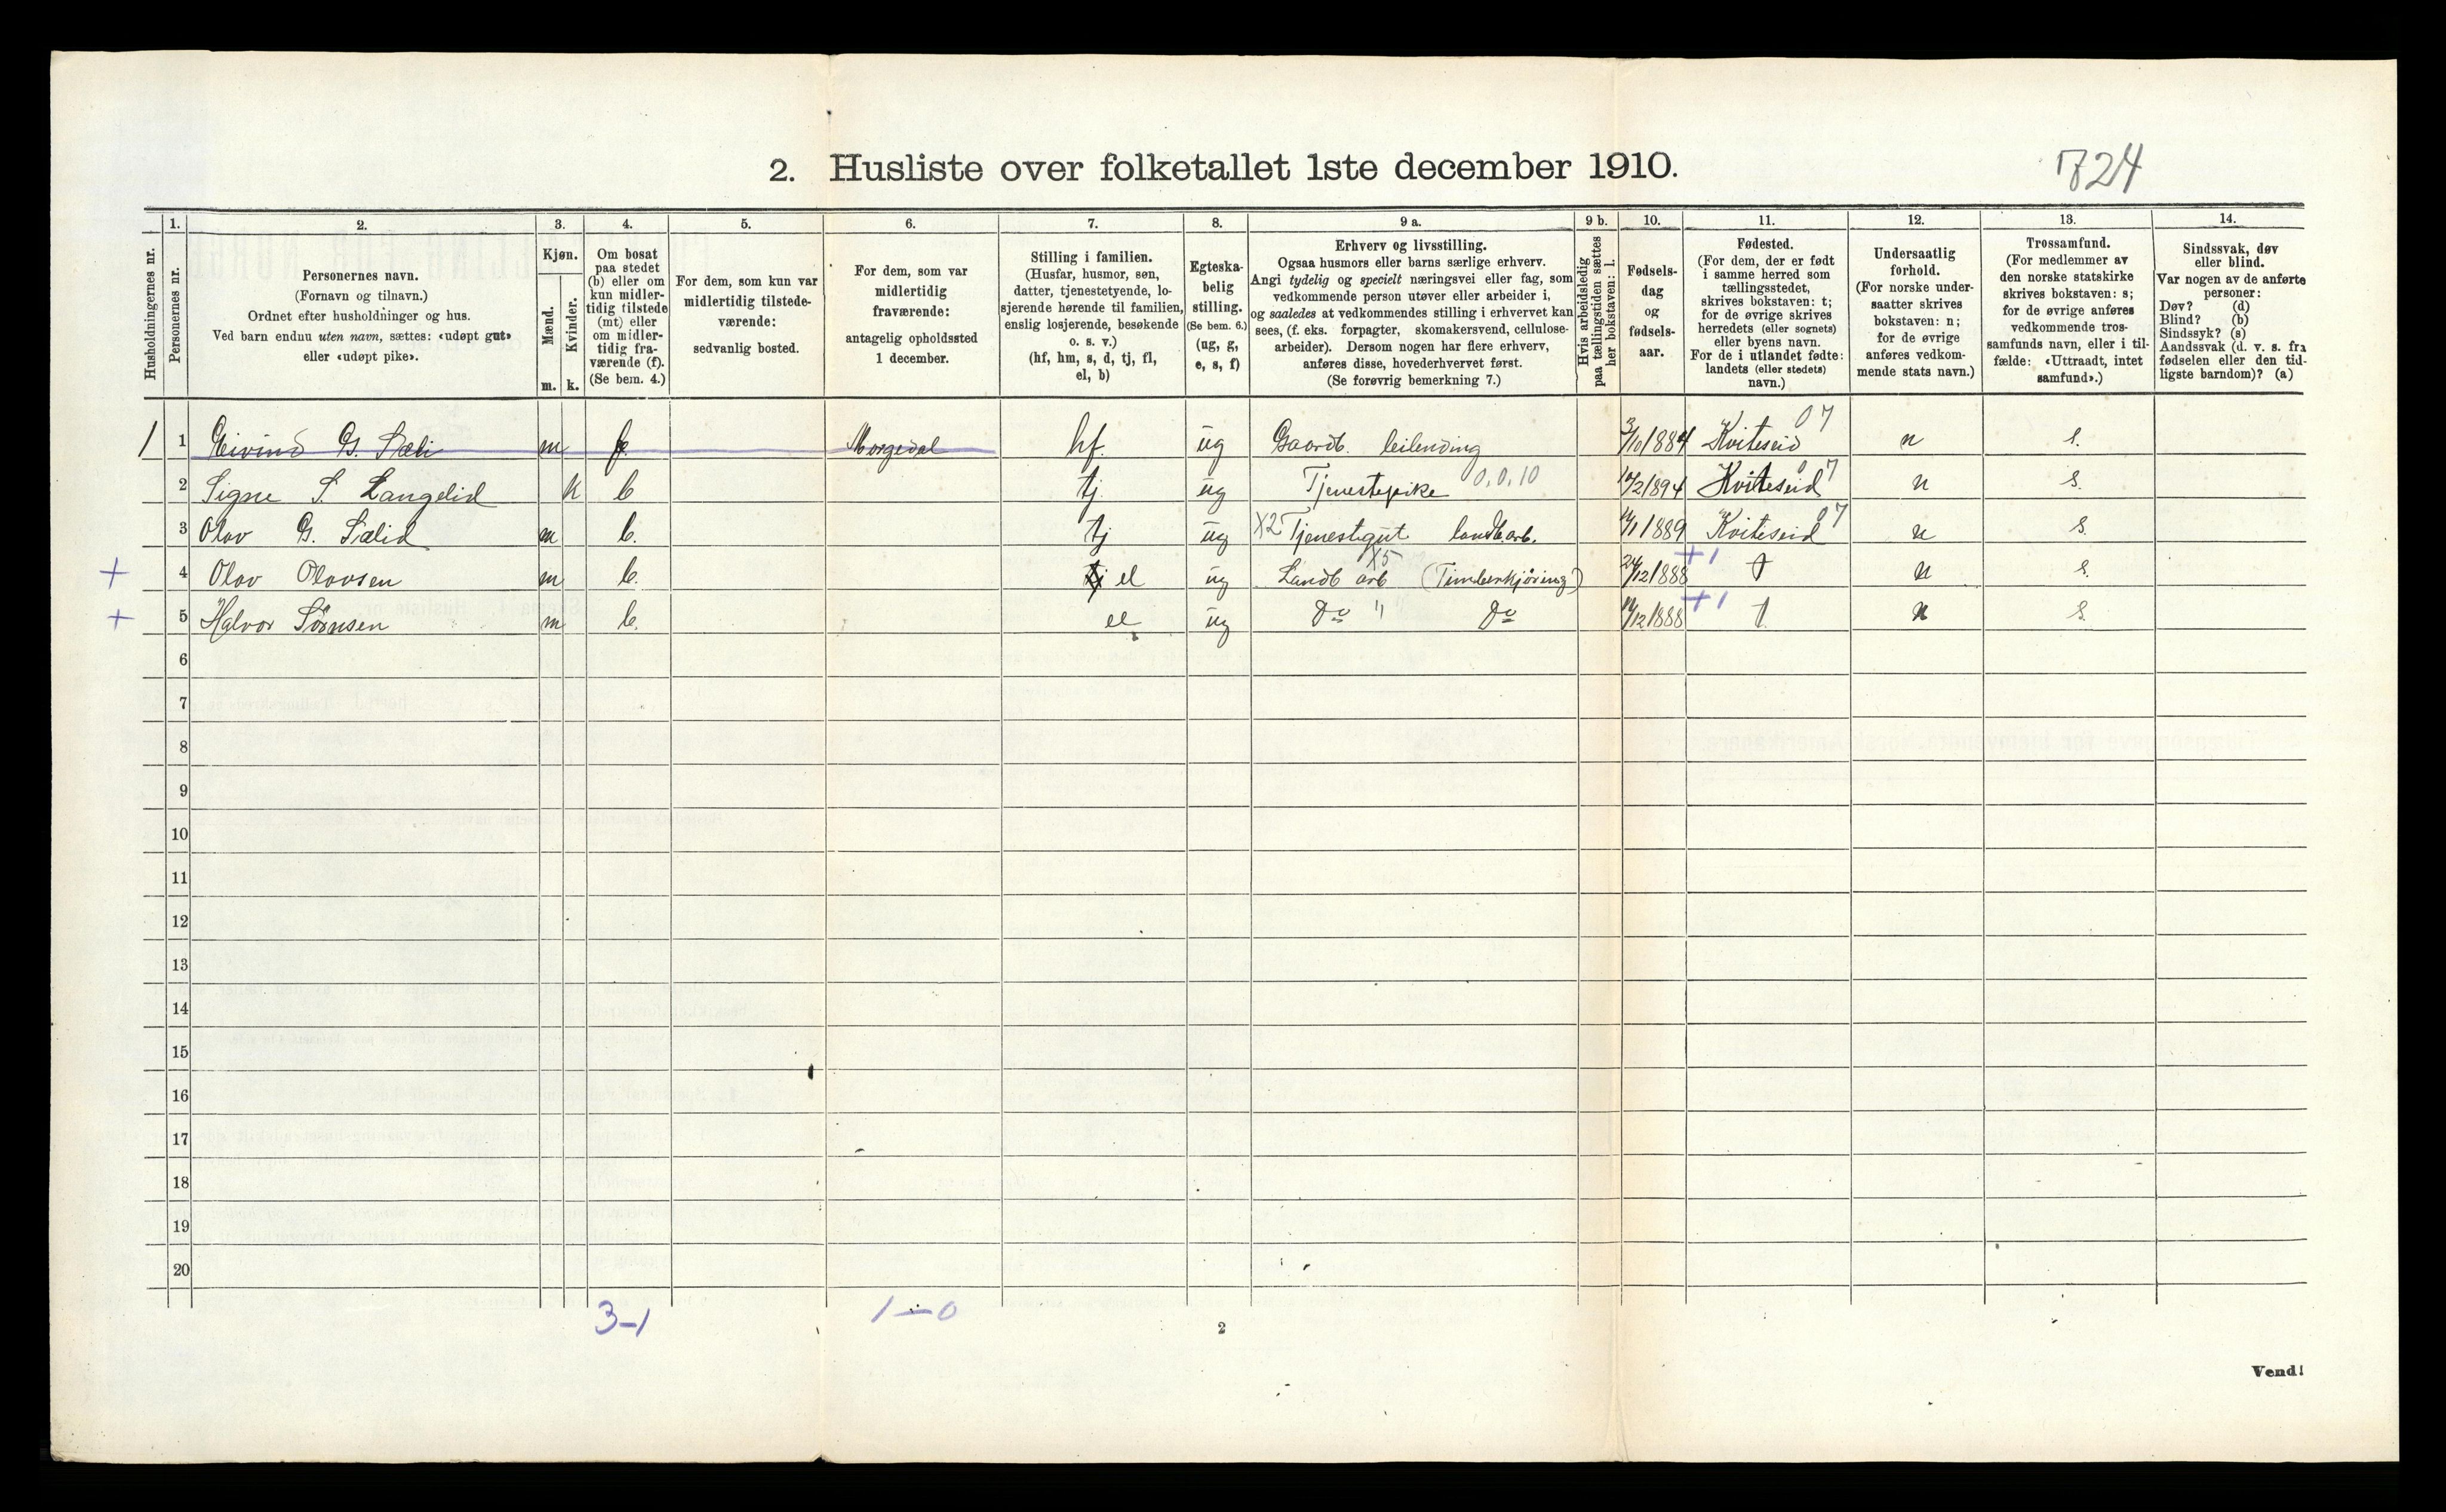 2. Husliste over folketallet 1ste december 1910.
724
Husholdningernes nr.
1.
Personernes nr.
2.
Personernes navn.
(Fornavn og tilnavn.)
Ordnet efter husholdninger og hus.
Ved barn endnu uten navn, sættes: «udøpt gut»
eller «udøpt pike».
3.
Kjøn.
Mænd.
Kvinder.
m. k.
4.
Om bosat
paa stedet
(b) eller om
kun midler-
tidig tilstede
(mt) eller
om midler-
tidig fra-
værende (f).
(Se bem. 4.)
5.
For dem, som kun var
midlertidig tilstede-
værende:
sedvanlig bosted.
6.
For dem, som var
midlertidig
fraværende:
antagelig opholdssted
1 december.
7.
Stilling i familien.
(Husfar, husmor, søn,
datter, tjenestetyende, lo-
sjerende hørende til familien,
enslig losjerende, besøkende
o. s. v.)
(hf, hm, s, d, tj, fl,
el, b)
8.
Egteska-
belig
stilling.
(Se bem. 6.)
(ug, g,
e, s, f)
9 a.
Erhverv og livsstilling.
Ogsaa husmors eller barns særlige erhverv.
Angi tydelig og specielt næringsvei eller fag, som
vedkommende person utøver eller arbeider i,
og saaledes at vedkommendes stilling i erhvervet kan
sees, (f. eks. forpagter, skomakersvend, cellulose-
arbeider). Dersom nogen har flere erhverv,
anføres disse, hovederhvervet først.
(Se forøvrig bemerkning 7.)
9 b.
Hvis arbeidsledig
paa tællingstiden sættes
her bokstaven: l.
10.
Fødsels-
dag
og
fødsels-
aar.
11.
Fødested.
(For dem, der er født
i samme herred som
tællingsstedet,
skrives bokstaven: t;
for de øvrige skrives
herredets (eller sognets)
eller byens navn.
For de i utlandet fødte:
landets (eller stedets)
navn.)
12.
Undersaatlig
forhold.
(For norske under-
saatter skrives
bokstaven: n;
for de øvrige
anføres vedkom-
mende stats navn.)
13.
Trossamfund.
(For medlemmer av
den norske statskirke
skrives bokstaven: s;
for de øvrige anføres
vedkommende tros-
samfunds navn, eller i til-
fælde: «Uttraadt, intet
samfund».)
14.
Sindssvak, døv
eller blind.
Var nogen av de anførte
personer:
Døv? (d)
Blind? (b)
Sindssyk? (s)
Aandssvak (d. v. s. fra
fødselen eller den tid-
ligste barndom)? (a)
1 1 Eivind G. Sæli m f. Morgedal hf. ug Gaardb. leilending 3/10 1884 Kviteseid 07 n s.
2 Signe S. Langelid k b tj. ug Tjenestepike 0,0,10 /2 1894 Kviteseid 07 n s.
3 Olav G. Sælid m b. tj ug X2 Tjenestegut landb.arb. /1 1889 Kviteseid 07 n s.
+ 4 Olav Olavsen m b. tj el ug Landb arb X5 (Timberkjøring) 24/12 1888 +1 t n s.
+ 5 Halvor Sørnsen m b. el ug Do " Do /12 1888 +1 t. n s.
6
7
8
9
10
11
12
13
14
15
16
17
18
19
20
3-1
1-0
2
Vend!